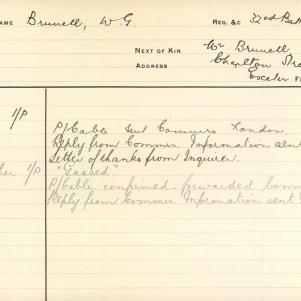 NAME Brunell, W.G. REG. &C 32nd Bat
NEXT OF KIN Mr Brunell
ADDRESS Charlton
Exeter
1/P P/Cable sent Commrs London.
Reply from Commrs. Information sent
Letter of thanks from Inquirer.
1/P "Gassed"
P/Cable confirmed - forwarded Comm
Reply from Commrs Information sent